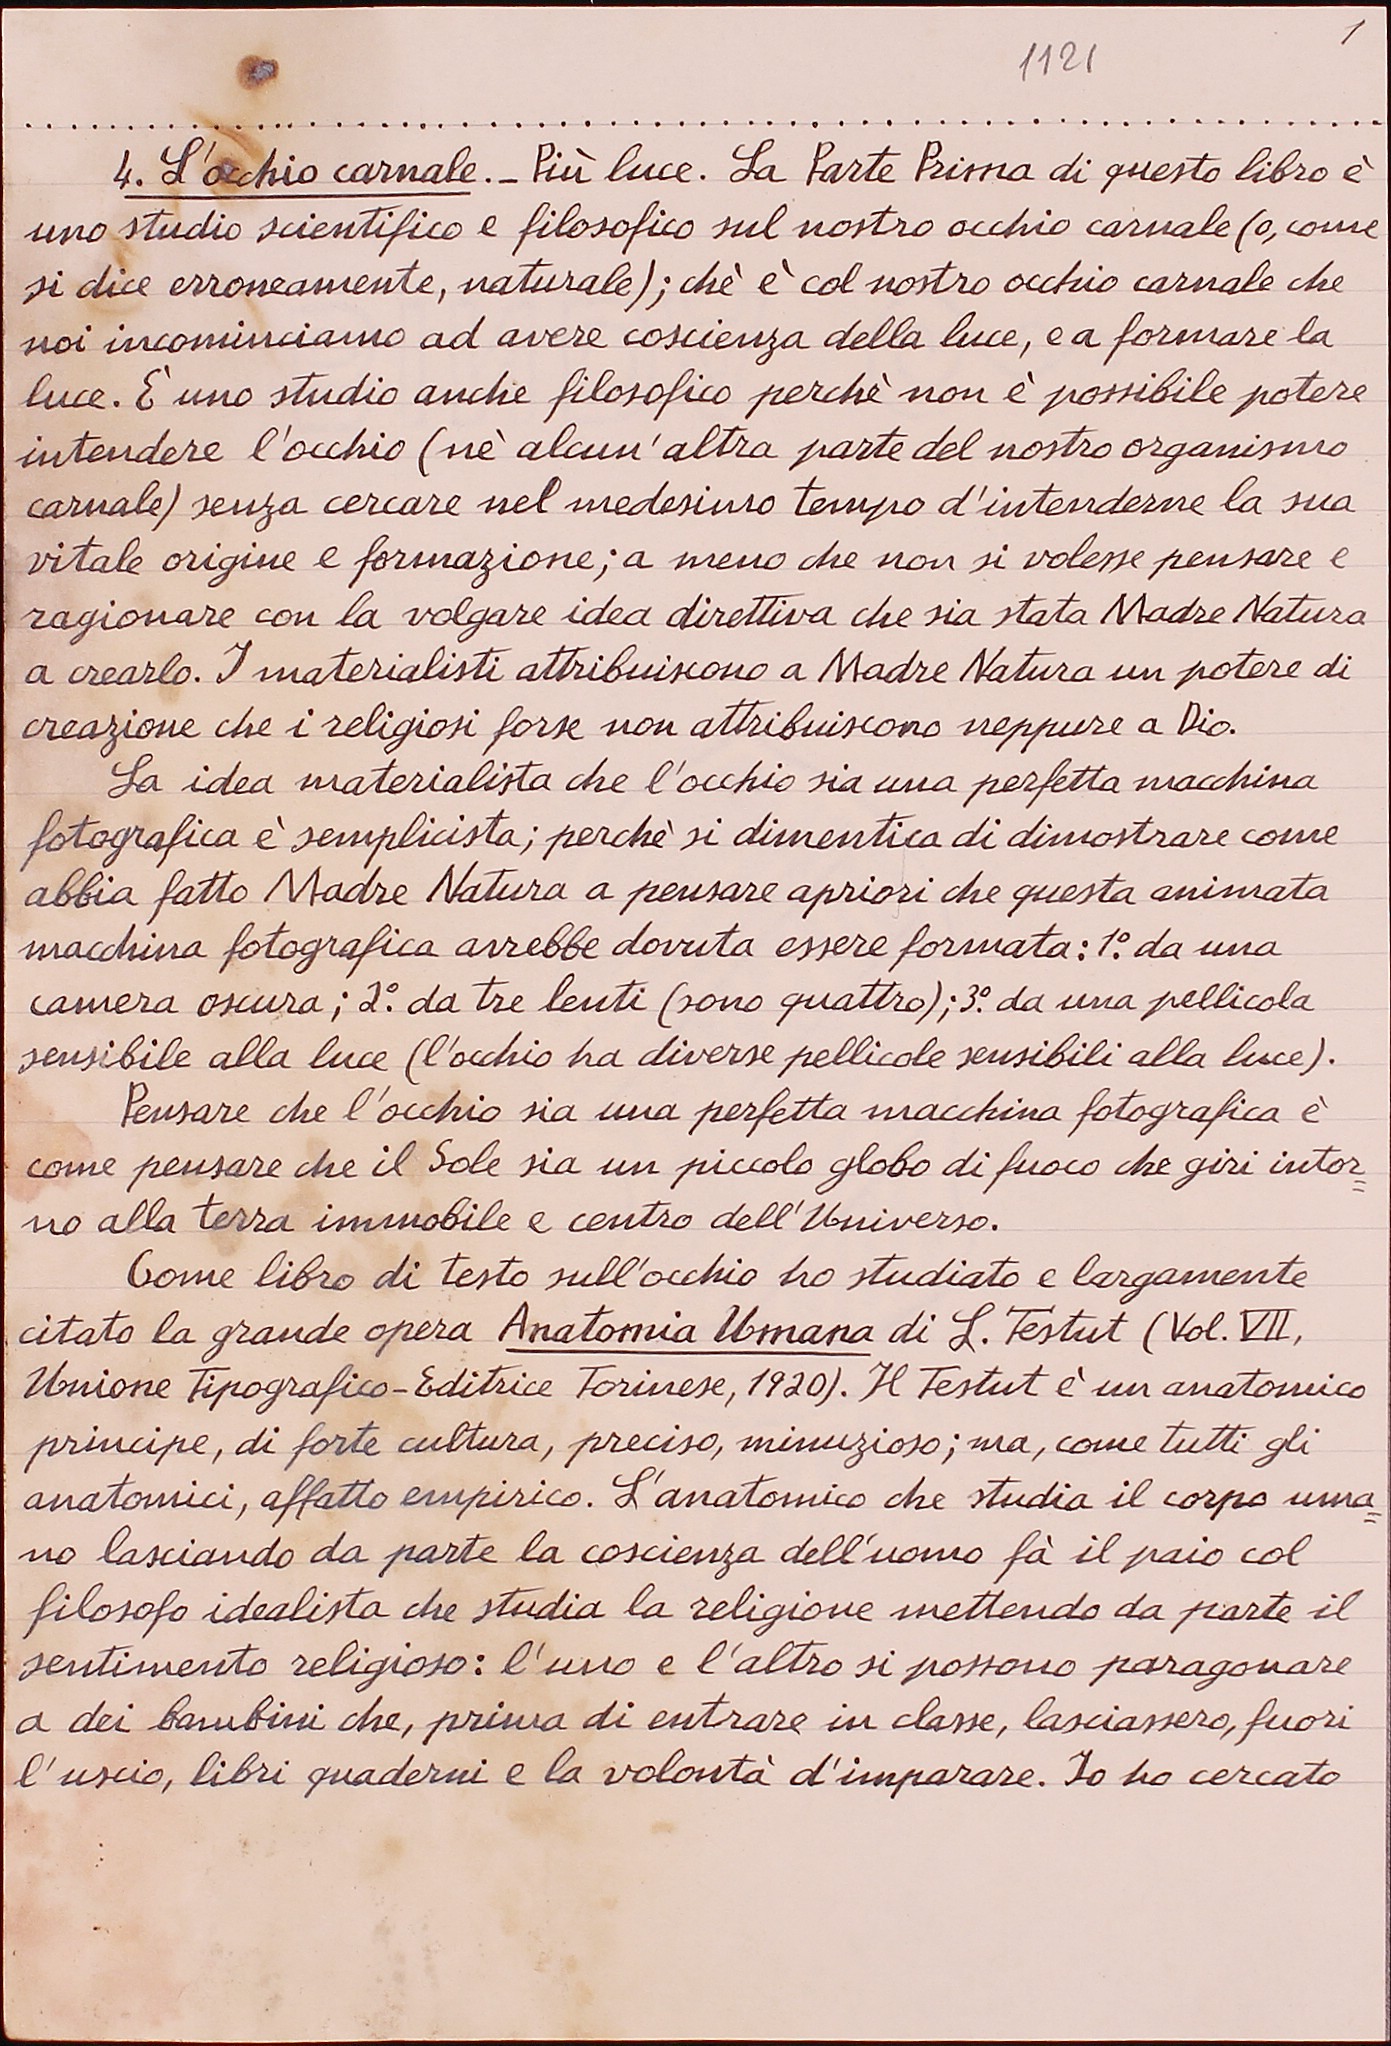 1
1121
4. L'occhio carnale. – Più luce. La Parte Prima di questo libro è
uno studio scientifico e filosofico sul nostro occhio carnale (o, come
si dice erroneamente, naturale); chè è col nostro occhio carnale che
noi incominciamo ad avere coscienza della luce, e a formare la
luce. È uno studio anche filosofico perchè non è possibile potere
intendere l'occhio (nè alcun'altra parte del nostro organismo
carnale) senza cercare nel medesimo tempo d'intenderne la sua
vitale origine e formazione; a meno che non si volesse pensare e
ragionare con la volgare idea direttiva che sia stata Madre Natura
a crearlo. I materialisti attribuiscono a Madre Natura un potere di
creazione che i religiosi forse non attribuiscono neppure a Dio.
La idea materialista che l'occhio sia una perfetta macchina
fotografica è semplicista; perchè si dimentica di dimostrare come
abbia fatto Madre Natura a pensare apriori che questa animata
macchina fotografica avrebbe dovuta essere formata: 1º. da una
camera oscura; 2º. da tre lenti (sono quattro); 3º. da una pellicola
sensibile alla luce (l'occhio ha diverse pellicole sensibili alla luce).
Pensare che l'occhio sia una perfetta macchina fotografica è
come pensare che il Sole sia un piccolo globo di fuoco che giri intor=
no alla terra immobile e centro dell'Universo.
Come libro di testo sull'occhio ho studiato e largamente
citato la grande opera Anatomia Umana di L. Testut (Vol. VII,
Unione Tipografico-Editrice Torinese, 1920). Il Testut è un anatomico
principe, di forte cultura, preciso, minuzioso; ma, come tutti gli
anatomici, affatto empirico. L'anatomico che studia il corpo uma=
no lasciando da parte la coscienza dell'uomo fà il paio col
filosofo idealista che studia la religione mettendo da parte il
sentimento religioso: l'uno e l'altro si possono paragonare
a dei bambini che, prima di entrare in classe, lasciassero, fuori
l'uscio, libri quaderni e la volontà d'imparare. Io ho cercato